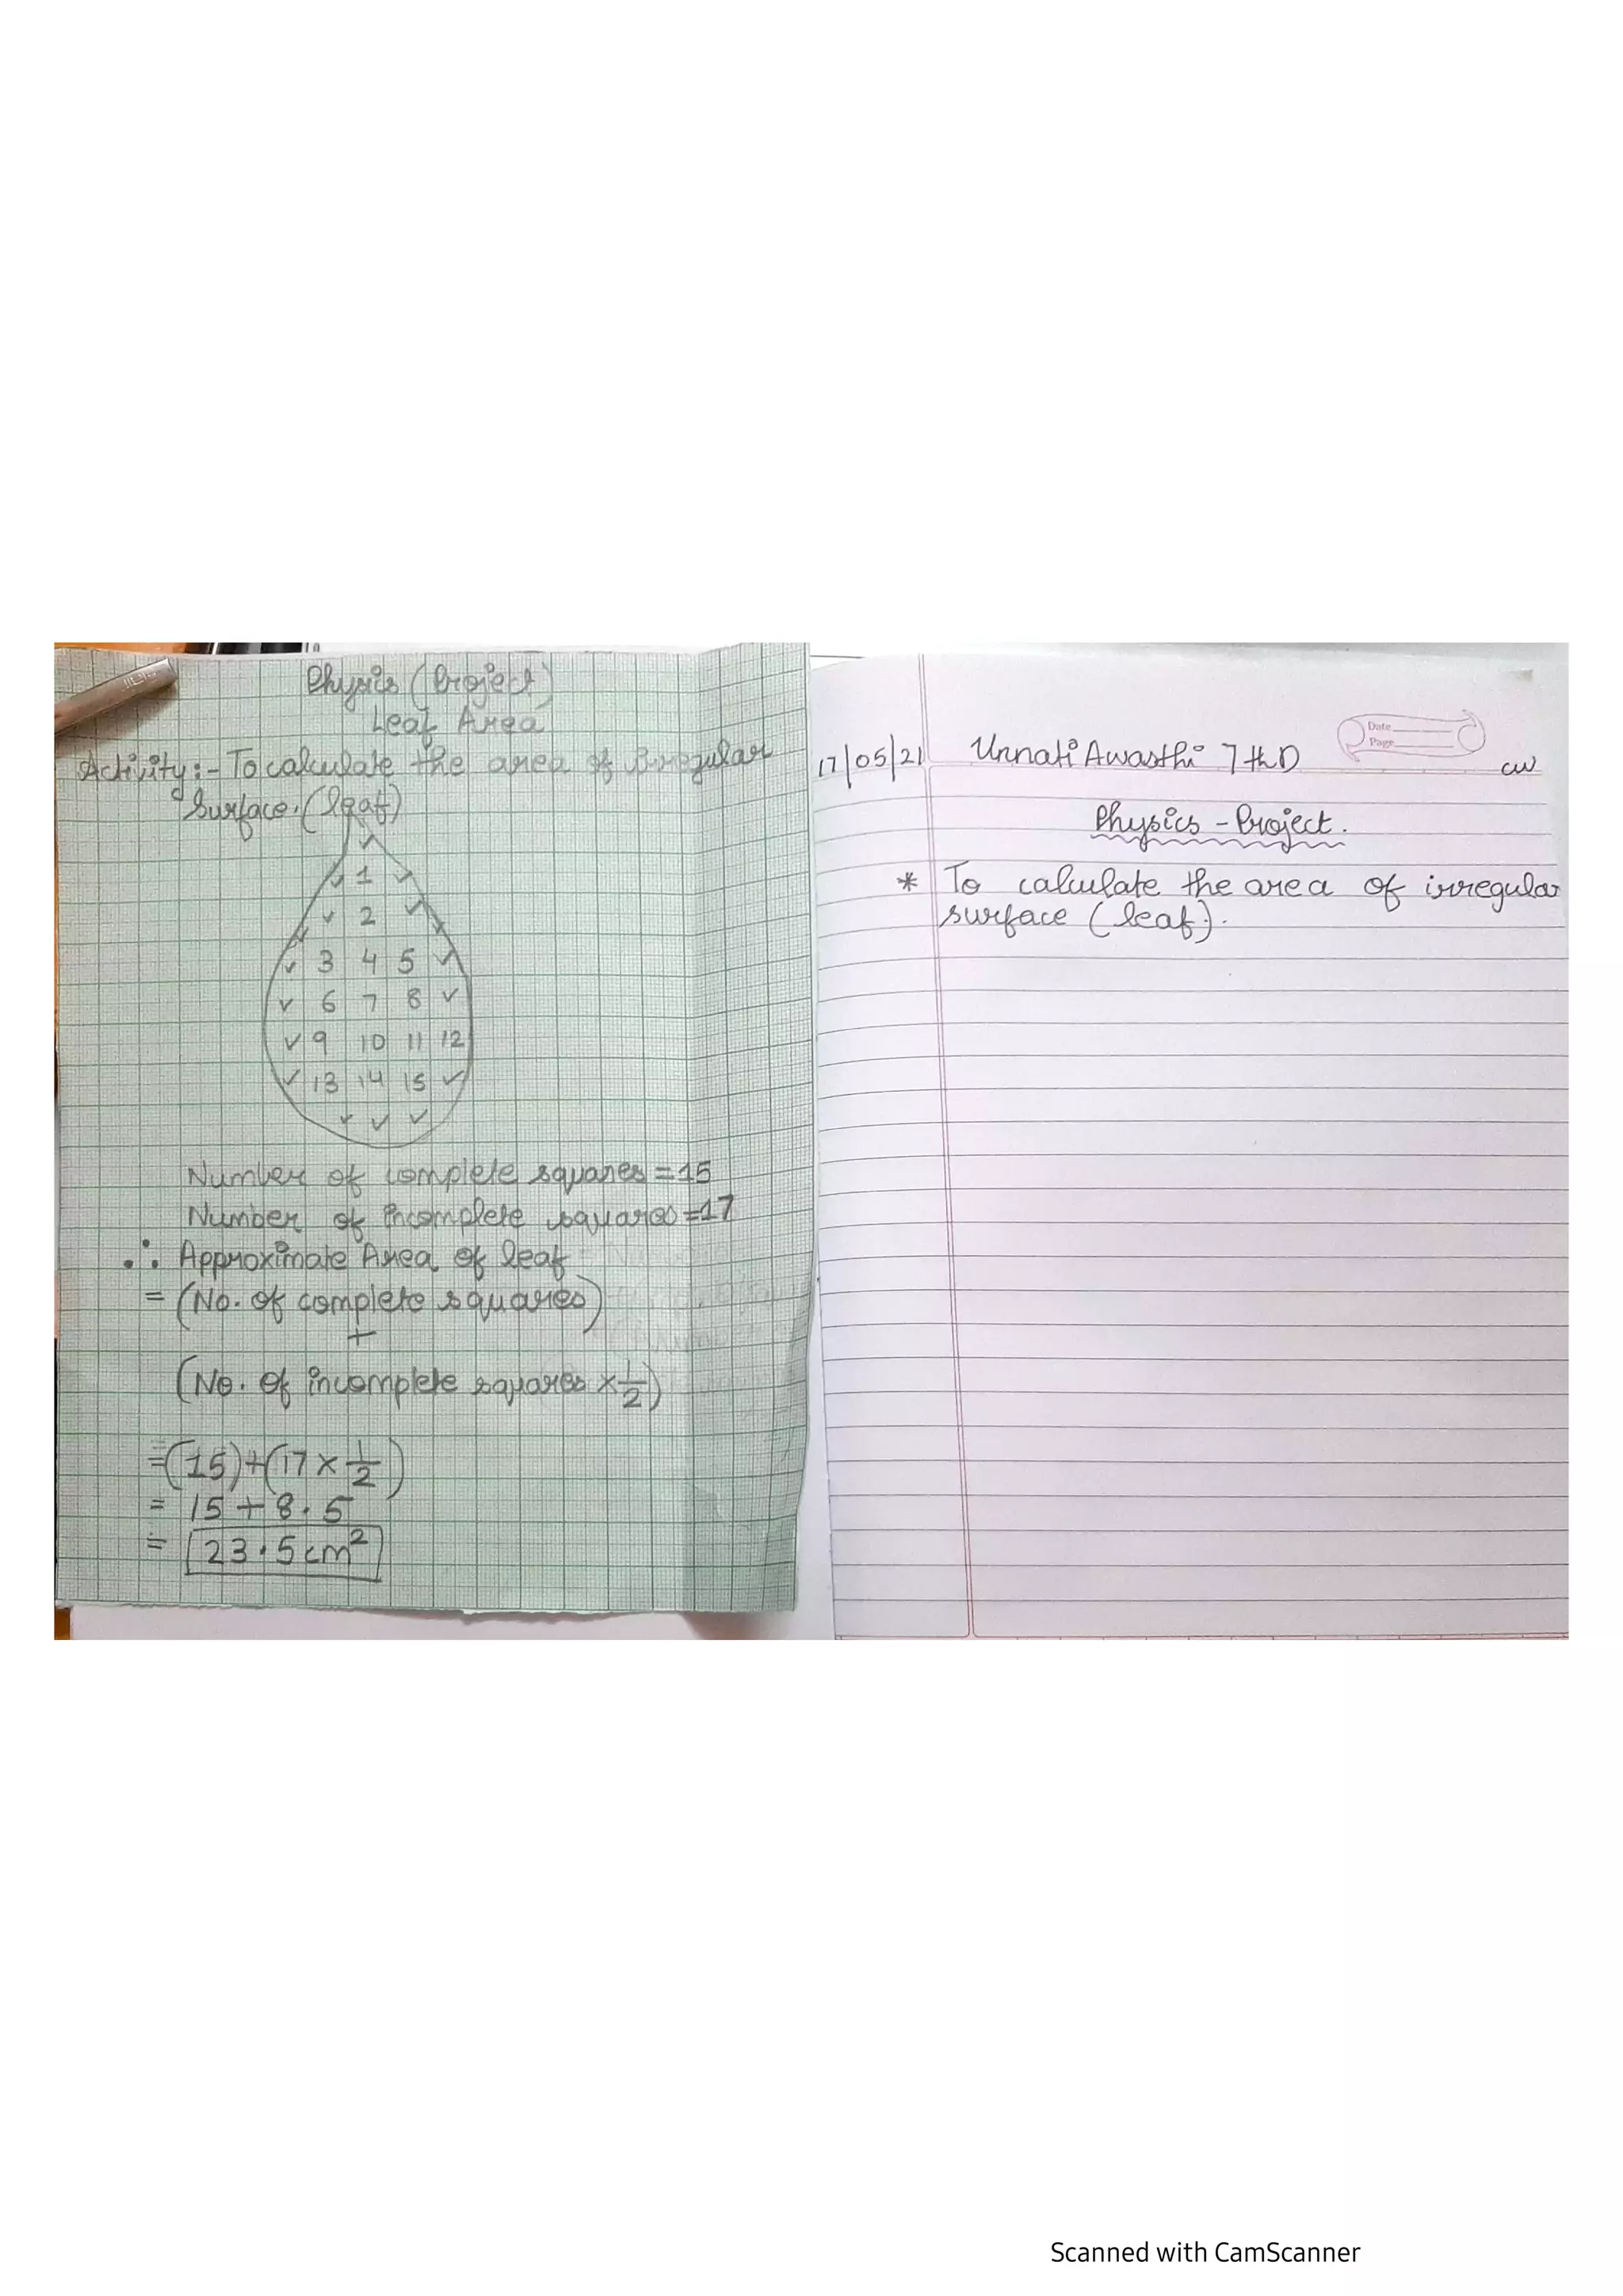 Physics (Project)
Leaf Area
Activity:- To calculate the area of irregular
Surface. (leaf)
✓
✓ 1 ✓
✓ 2 ✓
✓ 3 4 5 ✓
✓ 6 7 8 ✓
✓ 9 10 11 12
✓ 13 14 15 ✓
✓ ✓ ✓
Number of complete squares = 15
Number of incomplete squares = 17
∴ Approximate Area of leaf
= (No. of complete squares)
+
(No. of incomplete squares × 1/2)
= (15) + (17 × 1/2)
= 15 + 8.5
= 23.5 cm²
Date
Page
17/05/21 Unnati Awasthi 7th D cw
Physics - Project.
* To calculate the area of irregular
surface (leaf).
Scanned with CamScanner